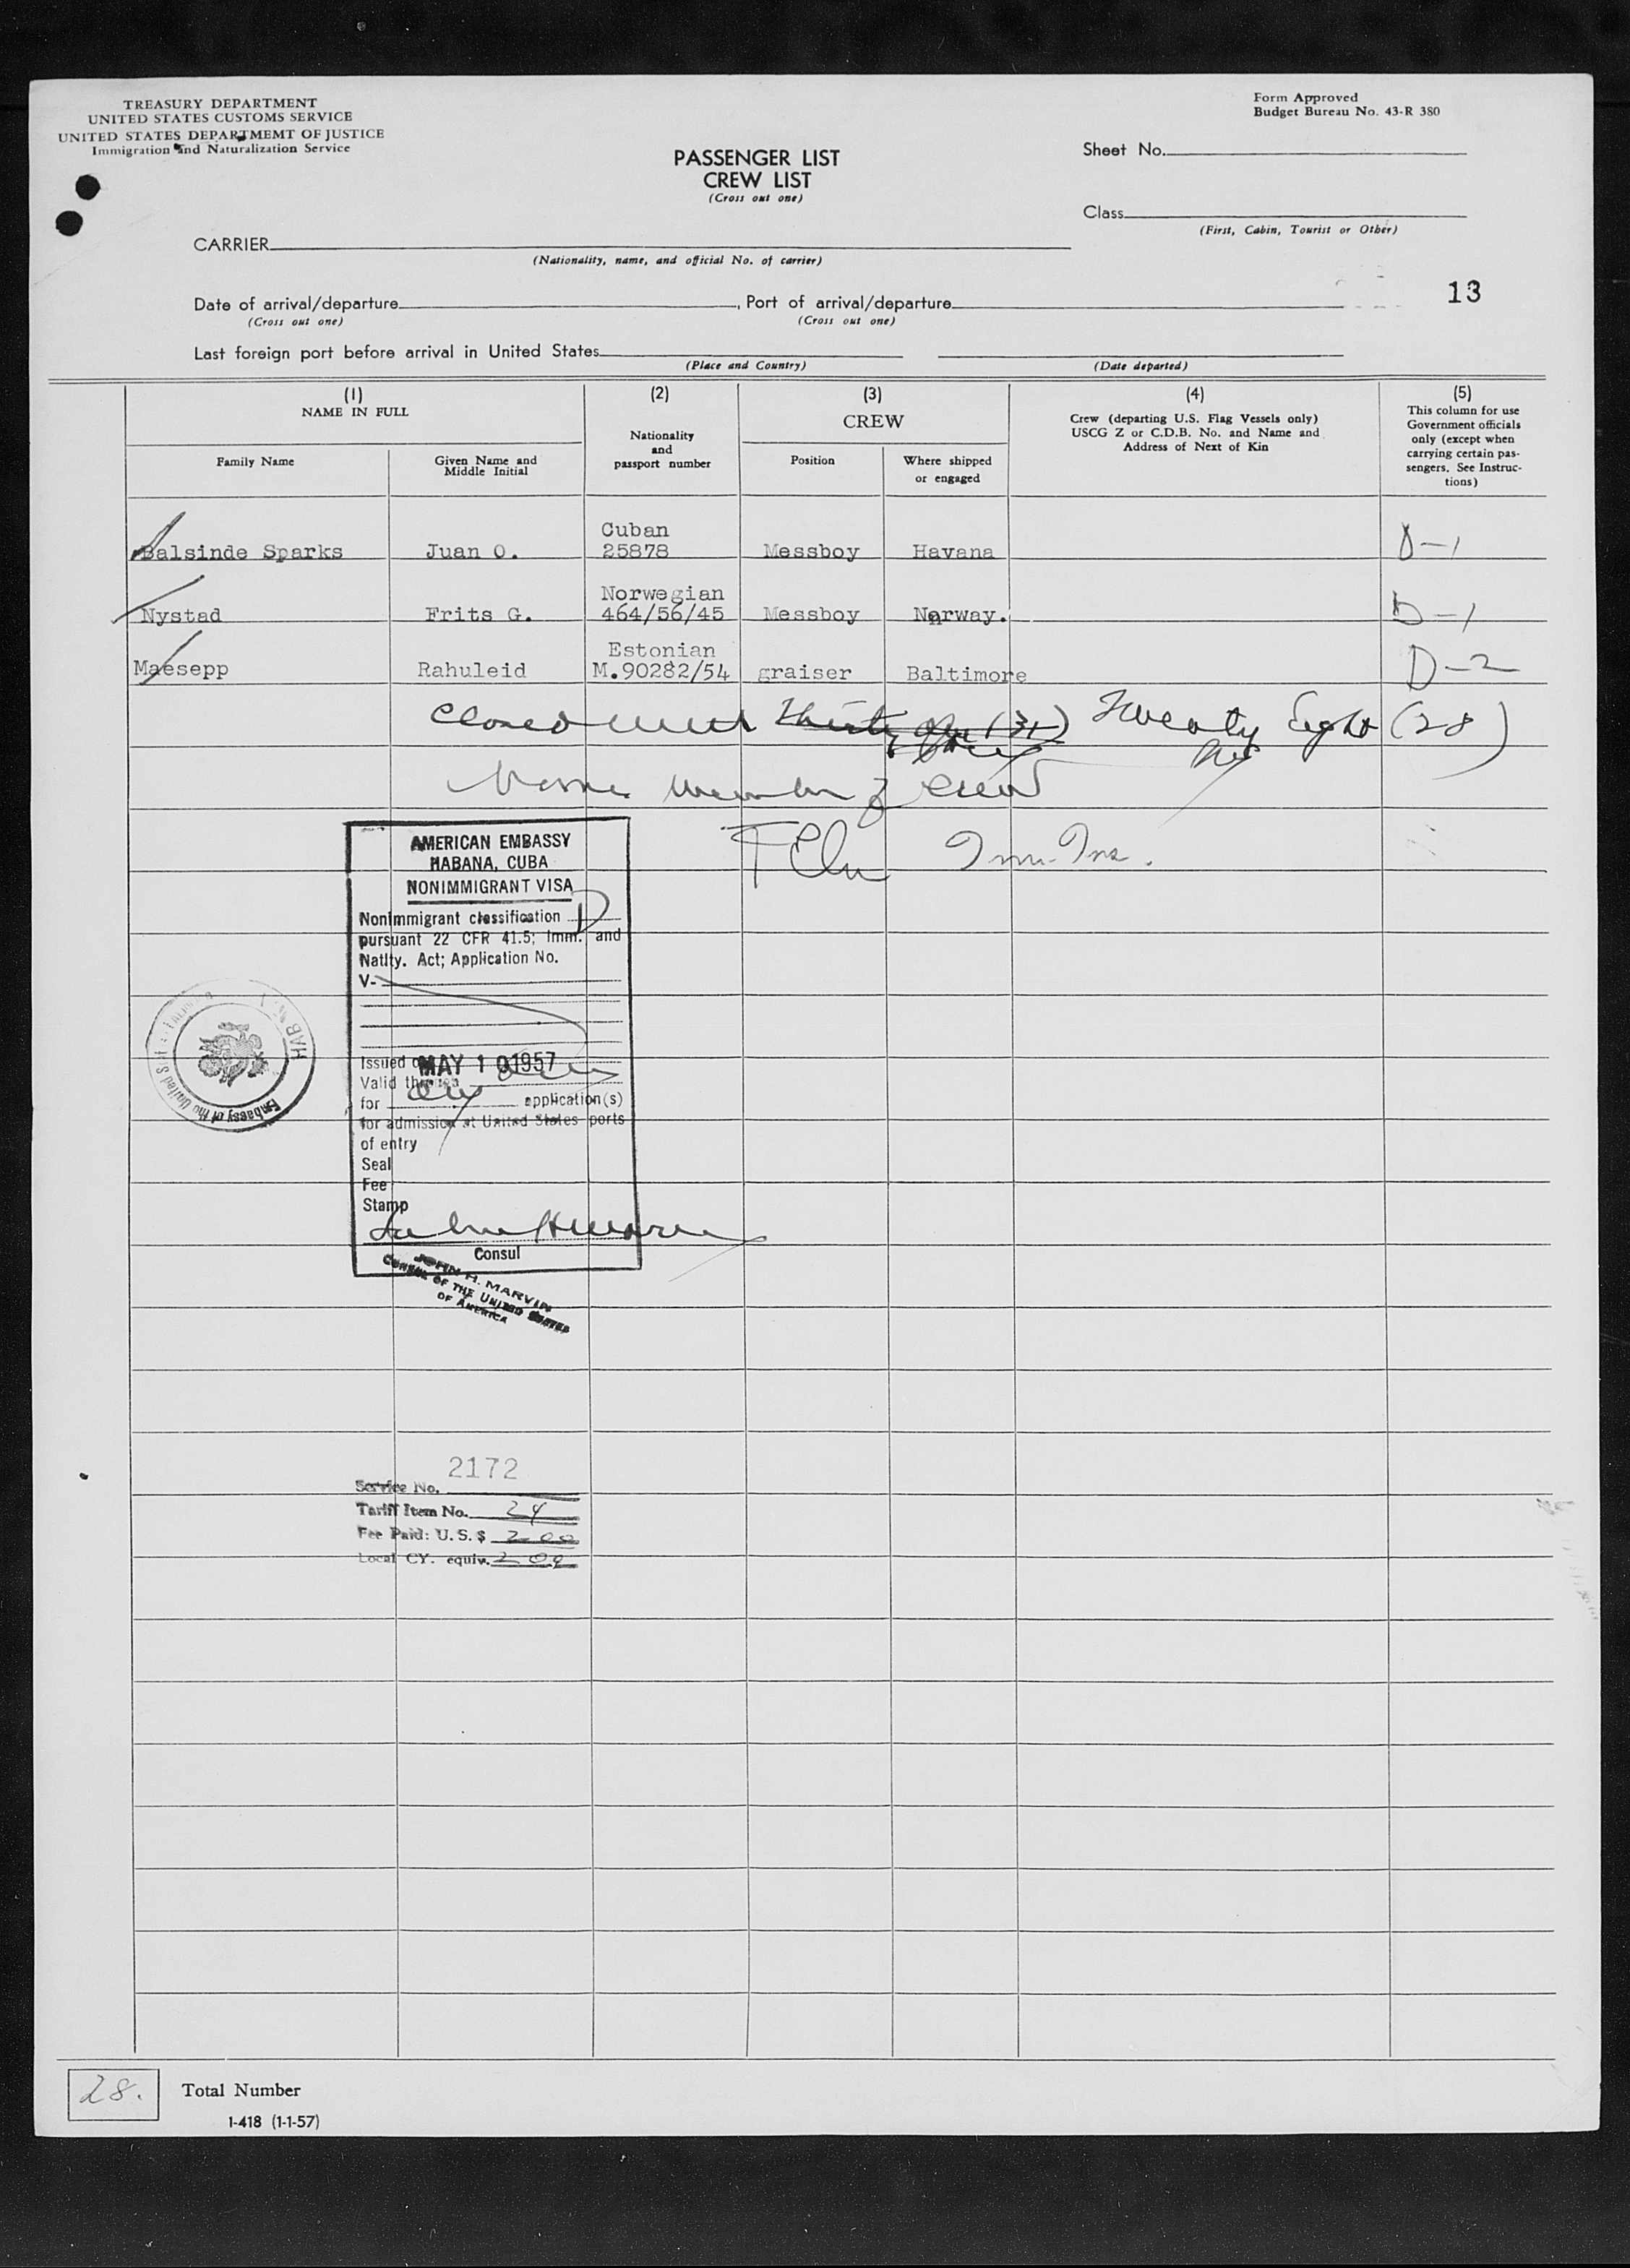 TREASURY DEPARTMENT
UNITED STATES CUSTOMS SERVICE
UNITED STATES DEPARTMEMT OF JUSTICE
Immigration and Naturalization Service
Form Approved
Budget Bureau No. 43-R 380
PASSENGER LIST
CREW LIST
(Cross out one)
Sheet No.
Class
(First, Cabin, Tourist or Other)
CARRIER
(Nationality, name, and official No. of carrier)
13
Date of arrival/departure , Port of arrival/departure
(Cross out one) (Cross out one)
Last foreign port before arrival in United States
(Place and Country) (Date departed)
(1)
NAME IN FULL
Family Name
Given Name and
Middle Initial
(2)
Nationality
and
passport number
(3)
CREW
Position
Where shipped
or engaged
(4)
Crew (departing U.S. Flag Vessels only)
USCG Z or C.D.B. No. and Name and
Address of Next of Kin
(5)
This column for use
Government officials
only (except when
carrying certain pas-
sengers. See Instruc-
tions)
Cuban
Balsinde Sparks Juan O. 25878 Messboy Havana D-1
Norwegian
Nystad Frits G. 464/56/45 Messboy Norway. D-1
Estonian
Maesepp Rahuleid M.90282/54 graiser Baltimore D-2
Closed with Thirty One (31) Twenty Eight (28)
member of crew
Imm. Ins.
AMERICAN EMBASSY
HABANA, CUBA
NONIMMIGRANT VISA
Nonimmigrant classification D
pursuant 22 CFR 41.5; Imm. and
Natlty. Act; Application No.
V-
Issued on MAY 10 1957
Valid through
for one application(s)
for admission at United States ports
of entry
Seal
Fee
Stamp
John H Marvin
Consul
JOHN H. MARVIN
CONSUL OF THE UNITED STATES
OF AMERICA
Embassy of the United States
Service No. 2172
Tariff Item No. 24
Fee Paid: U.S. $ 2.00
Local CY. equiv. 2.00
28. Total Number
I-418 (1-1-57)